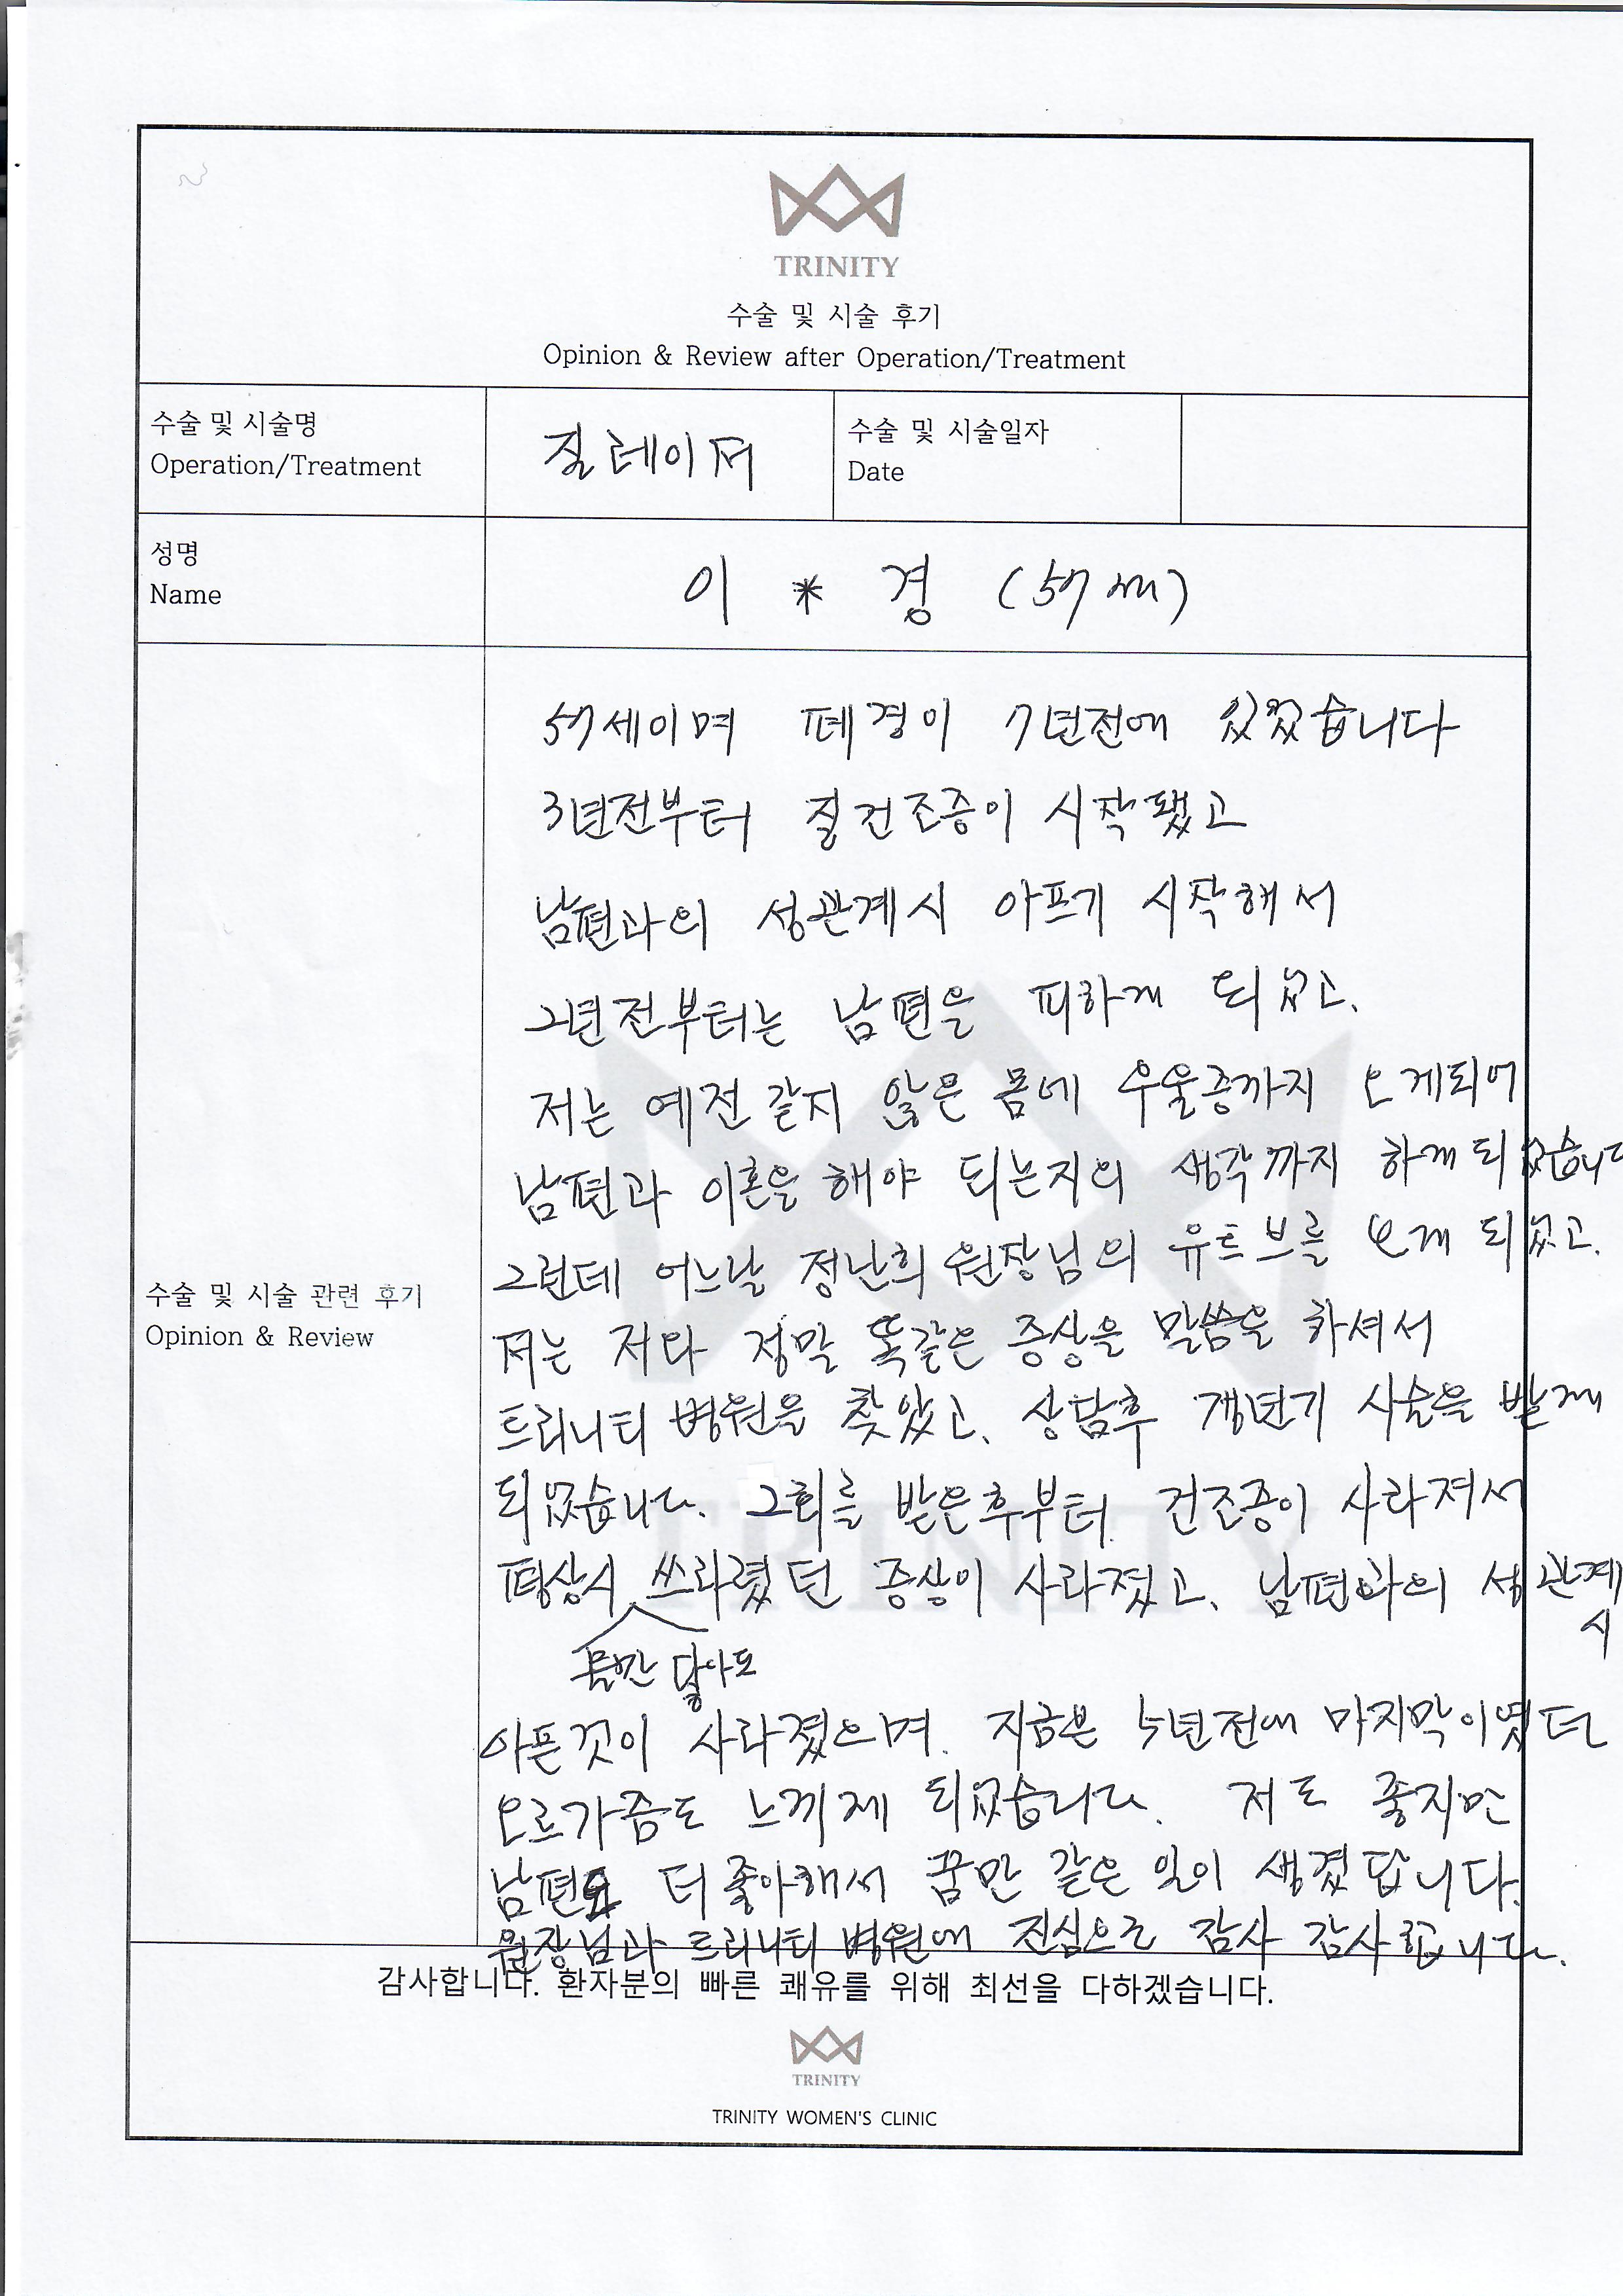 TRINITY
수술 및 시술 후기
Opinion & Review after Operation/Treatment
수술 및 시술명
Operation/Treatment
질 레이저
수술 및 시술일자
Date
성명
Name
이 * 경 (57세)
수술 및 시술 관련 후기
Opinion & Review
57세이며 폐경이 7년전에 있었습니다
3년전부터 질건조증이 시작됐고
남편과의 성관계시 아프기 시작해서
2년전부터는 남편을 피하게 되었고.
저는 예전 같지 않은 몸에 우울증까지 오게되어
남편과 이혼을 해야 되는지의 생각까지 하게되었습니다
그런데 어느날 정난희 원장님의 유트브를 보게 되었고.
저는 저와 정말 똑같은 증상을 말씀을 하셔서
트리니티 병원을 찾았고. 상담후 갱년기 시술을 받게
되었습니다. 2회를 받은후부터 건조증이 사라져서
평상시 쓰라렸던 증상이 사라졌고. 남편과의 성관계
시
물만 닿아도
아픈것이 사라졌으며. 지금은 5년전에 마지막이였던
오르가즘도 느끼게 되었습니다. 저도 좋지만
남편도 더 좋아해서 꿈만 같은 일이 생겼답니다.
원장님과 트리니티 병원에 진심으로 감사 감사합니다.
감사합니다. 환자분의 빠른 쾌유를 위해 최선을 다하겠습니다.
TRINITY
TRINITY WOMEN'S CLINIC
TRINITY